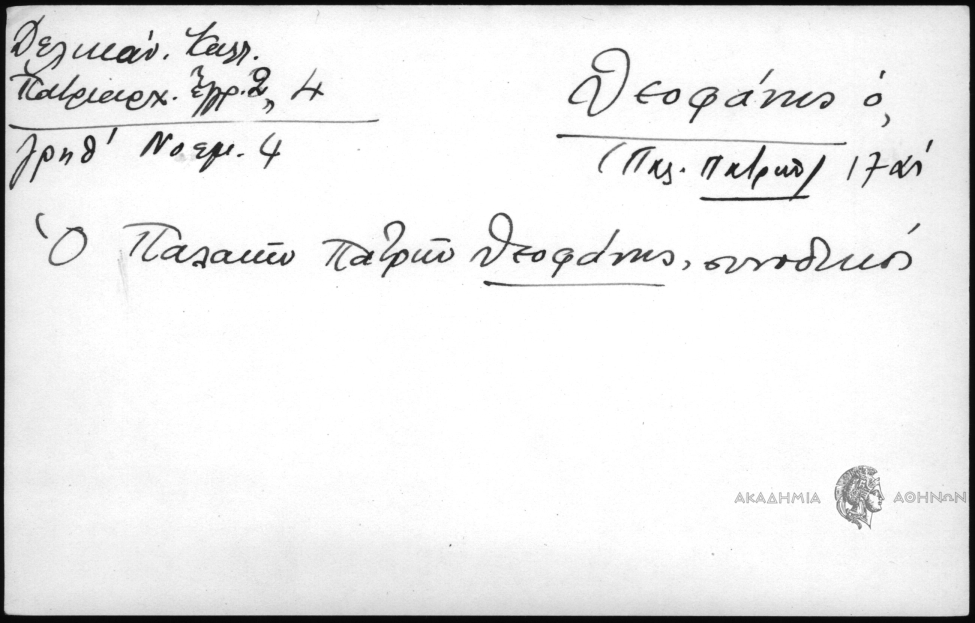 Δελικάν. Καλλ.
Πατριαρχ. Ἔγγρ. 2, 4
Νοεμ. 4
Θεοφάνης ὁ,
(Παλ. Πατρῶν) 17 αἰ
Ὁ Παλαιῶν Πατρῶν Θεοφάνης, συνοδικός
ΑΚΑΔΗΜΙΑ ΑΘΗΝΩΝ